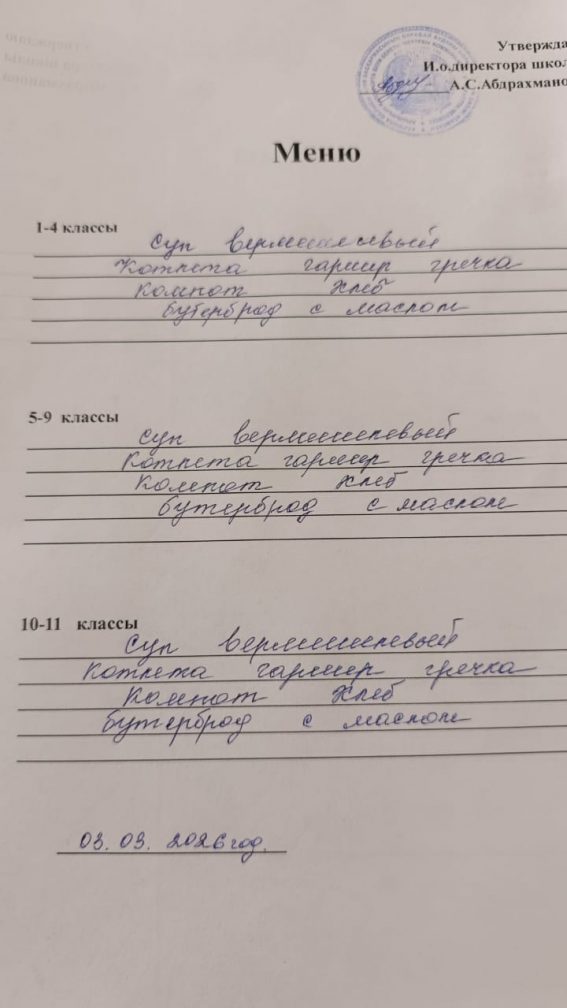 Утвержда
И.о.директора школ
А.С.Абдрахмано
Меню
1-4 классы
Суп вермишелевый
Котлета гарнир гречка
Компот хлеб
бутерброд с маслом
5-9 классы
Суп вермишелевый
Котлета гарнир гречка
Компот хлеб
бутерброд с маслом
10-11 классы
Суп вермишелевый
Котлета гарнир гречка
Компот хлеб
бутерброд с маслом
03.03.2026год.